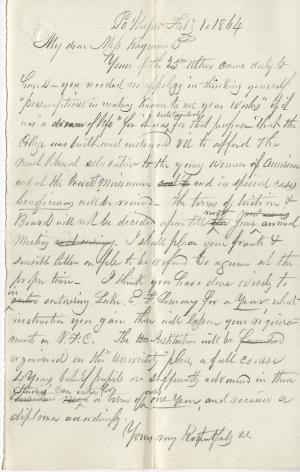 Po'keepsie Feby 1, 1864
My dear Miss
Yours of the 25th ultimo came duly to
hand - you needed no apology in thinking yourself
"presumptious in making known to me your wishes" it is
not a dream of life for it was for that purpose that the
College was built and endowed viz to afford the
most liberal education to the young women of America
and at the lowest minimum and in special cases
will be received - the terms of tuition &
Board will not be decided upon till our annual
Meeting I shall place your frank &
sensible letter on file to be referred to again at the
proper time - I think you have done wisely to
entering Lake E F Seminary for a Year what
instruction you gain there will lessen your requirements
in V. F. C. The Institution will be
organised on the "University" plan, a full course
4 years but if pupils are sufficiently advanced in their
Studies can enter for one Year, and receive a
diploma accordingly.
Yours very Respectfully &c